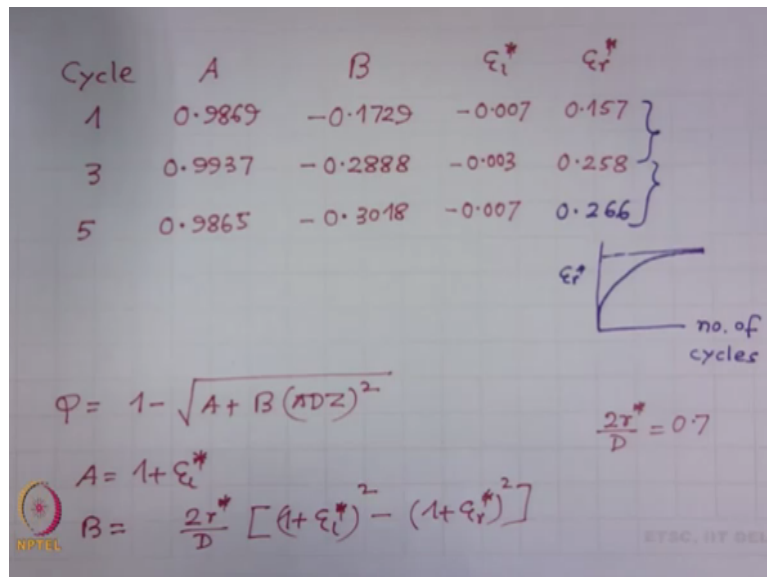 Cycle A B εₗ* εᵣ*
1 0.9869 -0.1729 -0.007 0.157
3 0.9937 -0.2888 -0.003 0.258
5 0.9865 -0.3018 -0.007 0.266
εᵣ*
no. of
cycles
φ = 1 - √(A + B (ADZ)²)
2r*/D = 0.7
A = 1 + εₗ*
B = 2r*/D [(1+εₗ*)² - (1+εᵣ*)²]
NPTEL
ETSC, IIT DEL